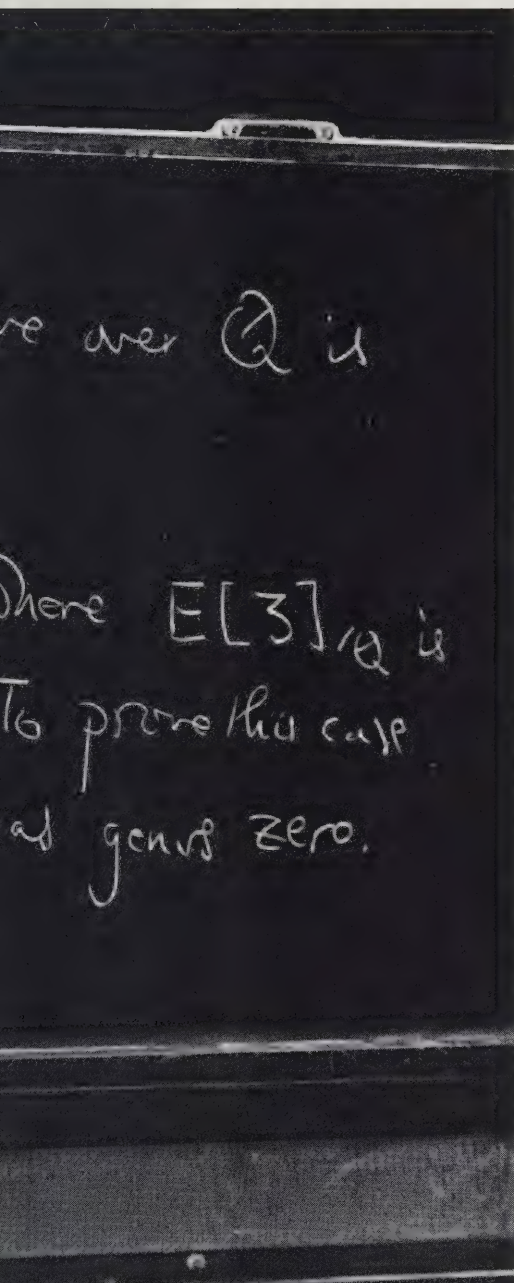 ve over Q is
where E[3]/Q is
To prove this case
as genus zero.